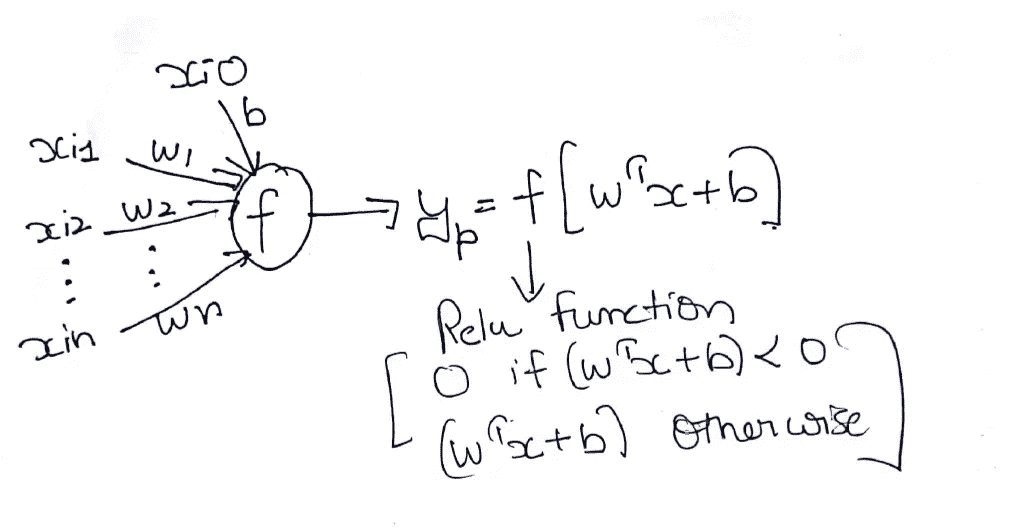 xi0
b
xi1 w1
xi2 w2 f → yp = f[wᵀx+b]
⋮ ⋮ ↓
xin wn
Relu function
0 if (wᵀx+b) < 0
(wᵀx+b) otherwise